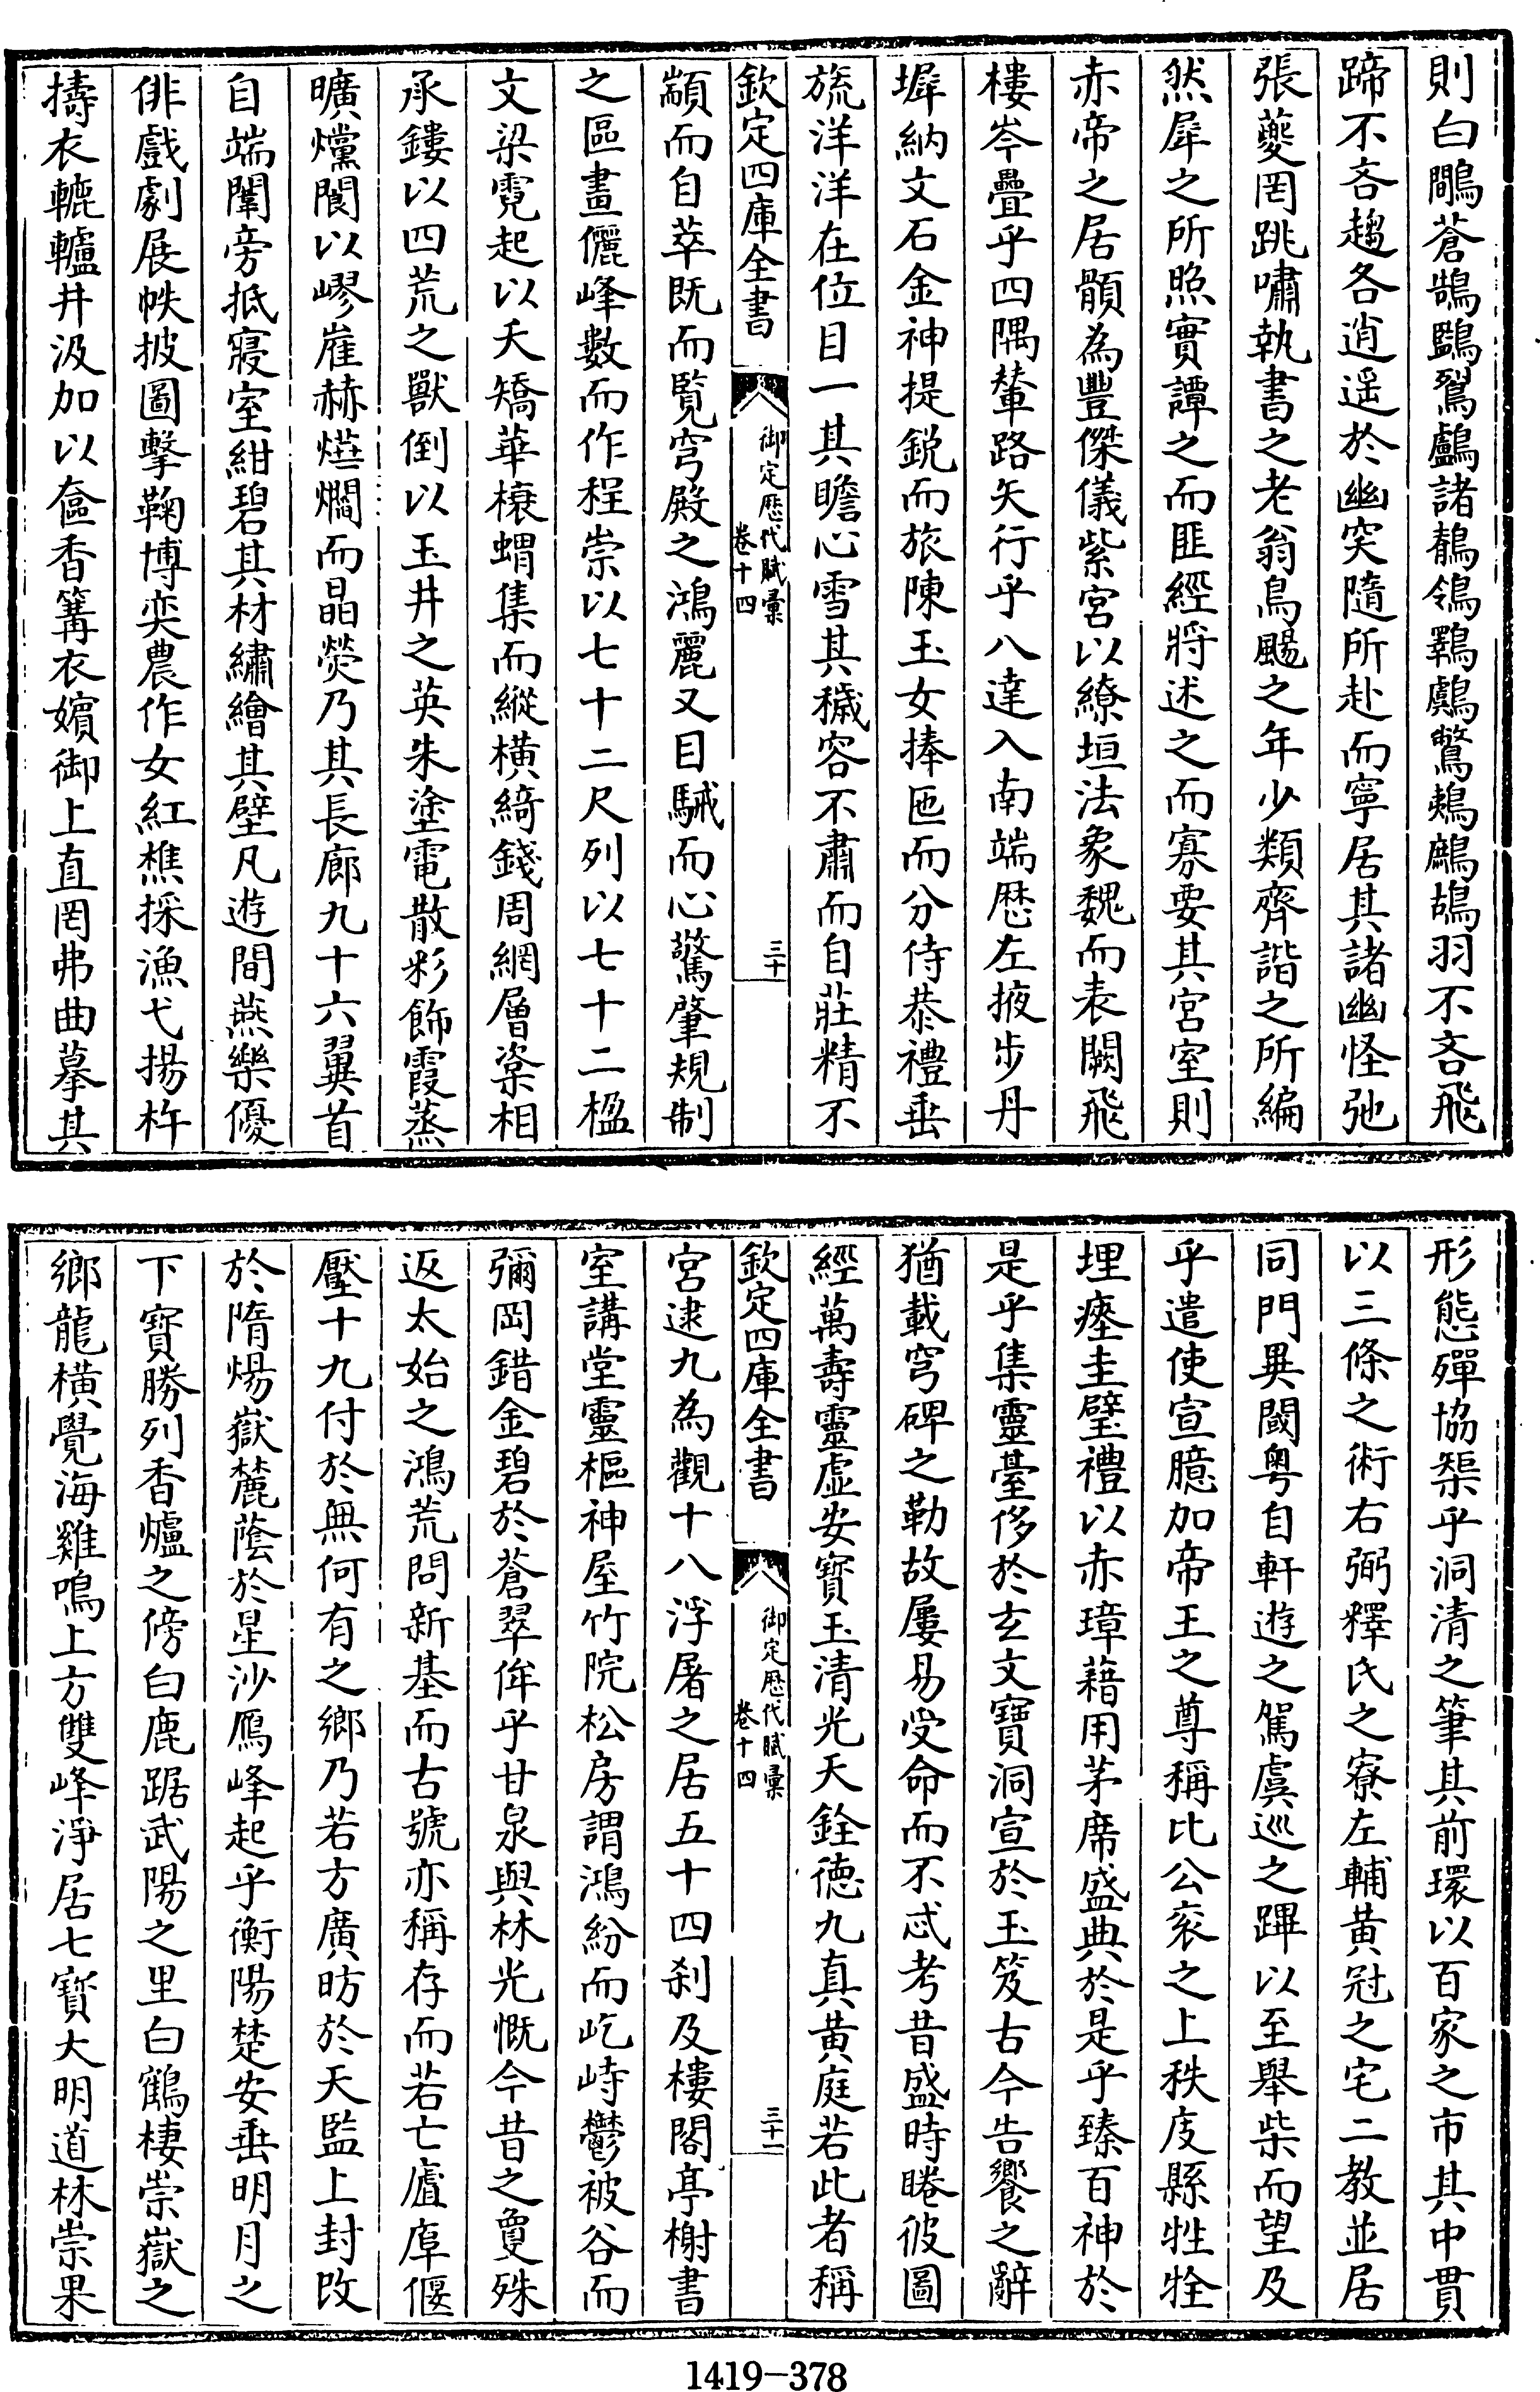 則白鷴蒼鵠鷖鴛鸕諸鶺鴒鸐鸆鷩鵣鷓鴣羽不吝飛
蹄不吝趨各逍遥於幽突隨所赴而寧居其諸幽怪弛
張夔罔跳嘯執書之老翁鳥颺之年少類齊諧之所編
然犀之所照實譚之而匪經將述之而寡要其宮室則
赤帝之居顝為豐傑儀紫宮以繚垣法象魏而表闕飛
樓岑疊乎四隅輦路矢行乎八達入南端歷左掖步丹
墀納文石金神提鋭而旅陳玉女捧匜而分侍恭禮垂
旒洋洋在位目一其瞻心雪其穢容不肅而自莊精不
欽定四庫全書
御定歷代賦彙
卷十四
三十
顓而自萃既而覧穹殿之鴻麗又目駴而心驚肇規制
之區畫儷峰數而作程崇以七十二尺列以七十二楹
文梁霓起以夭矯華榱蝟集而縱橫綺錢周網層楶相
承鏤以四荒之獸倒以玉井之英朱塗電散彩飾霞蒸
曠爣閬以嵺嶉赫㷼爓而晶熒乃其長廊九十六翼首
自端闈旁抵寢室紺碧其材繡繪其壁凡遊間燕樂優
俳戲劇展帙披圖擊鞠博奕農作女紅樵採漁弋揚杵
擣衣轆轤井汲加以奩香篝衣嬪御上直罔弗曲摹其
形態殫協榘乎洞清之筆其前環以百家之市其中貫
以三條之術右弼釋氏之寮左輔黄冠之宅二教並居
同門異閾粤自軒遊之駕虞巡之蹕以至舉柴而望及
乎遣使宣臆加帝王之尊稱比公衮之上秩庋縣牲牷
埋瘞圭璧禮以赤璋藉用茅席盛典於是乎臻百神於
是乎集靈臺侈於玄文寶洞宣於玉笈古今告饗之辭
猶載穹碑之勒故屢易受命而不忒考昔盛時睠彼圖
經萬壽靈虛安寶玉清光天銓德九真黄庭若此者稱
欽定四庫全書
御定歷代賦彙
卷十四
三十一
宮逮九為觀十八浮屠之居五十四刹及樓閣亭榭書
室講堂靈樞神屋竹院松房謂鴻紛而屹峙鬱被谷而
彌岡錯金碧於蒼翠侔乎甘泉與林光慨今昔之敻殊
返太始之鴻荒問新基而古號亦稱存而若亡廬阜偃
壓十九付於無何有之鄉乃若方廣昉於天監上封改
於隋煬嶽麓蔭於星沙鴈峰起乎衡陽楚安垂明月之
下寶勝列香爐之傍白鹿踞武陽之里白鶴棲崇嶽之
鄉龍橫覺海雞鳴上方雙峰淨居七寶大明道林崇果
1419-378